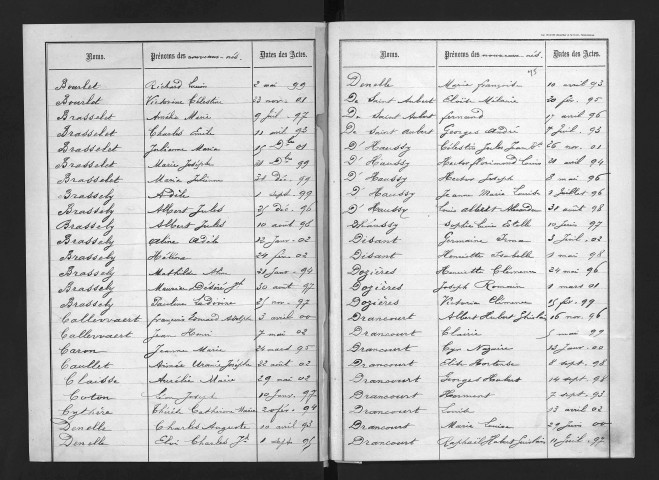 Noms. Prénoms des nouveaux-nés. Dates des Actes.
Bourlet Richard Louis 2 mai 99
Bourlet Victorine Célestine 23 nov. 01
Brasselet Amélie Marie 9 Juil. 97
Brasselet Charles Emile 11 avril 93
Brasselet Julienne Maria 15 Dbre 01
Brasselet Marie Joséphe Dbre 99
Brasselet Maria Julienne déc. 99
Brassely Adèle 1 sept. 99
Brassely Albert Jules 31 déc. 96
Brassely Albert Jules 10 août 96
Brassely Aline Adèle 12 Janv. 02
Brassely Hélène 24 févr. 02
Brassely Mathilde 21 Janv. 94
Brassely Maurice Désiré Jh 30 août 97
Brassely Pauline Ludivine 25 nov. 97
Callewaert François Edouard Adolphe 3 avril 00
Callewaert Jean Henri 7 mai 02
Caron Jeanne Marie 24 mars 95
Caullet Aimée Uranie Josèphe 22 août 02
Claisse Aurélie Marie 29 mai 02
Coton Léon Joseph 10 Janv. 97
Cythère Thérèse Catherine Marie 20 fév. 94
Denelle Charles Auguste 10 avril 93
Denelle Eloi Charles Jh 1 sept. 95
Noms. Prénoms des nouveaux-nés. Dates des Actes.
Denelle Marie Françoise 10 avril 93
De Saint Aubert Eloïse Mélanie 20 fév. 95
De Saint Aubert Fernand 17 avril 96
De Saint Aubert Georges André 7 Juil. 93
D'Haussy Célestin Jules Jean Bte 26 nov. 01
D'Haussy Hector Florimond Louis 20 avril 94
D'Haussy Hector Joseph 8 mai 96
D'Haussy Jeanne Marie Louise 2 Juillet 96
D'Haussy Louis Albert Alexandre 30 août 98
Dhaussy Sophie Louise Estelle 10 Janv. 97
Disant Germaine Irma 3 Juil. 02
Disant Henriette Isabelle 1 mai 98
Dozières Henriette Clémence 24 mai 96
Dozières Joseph Romain 1 mars 01
Dozières Victoria Clémence 15 fév. 99
Drancourt Albert Hubert Ghislain 16 nov. 96
Drancourt Clairie 5 mai 99
Drancourt Nazaire 12 Janv. 00
Drancourt Elise Hortense 8 sept. 98
Drancourt Georges Hubert 14 sept. 98
Drancourt Hermant 7 sept. 93
Drancourt Louise 13 avril 02
Drancourt Marie Louise 29 Juin 00
Drancourt Raphaël Hubert Ghislain 11 Juil. 97